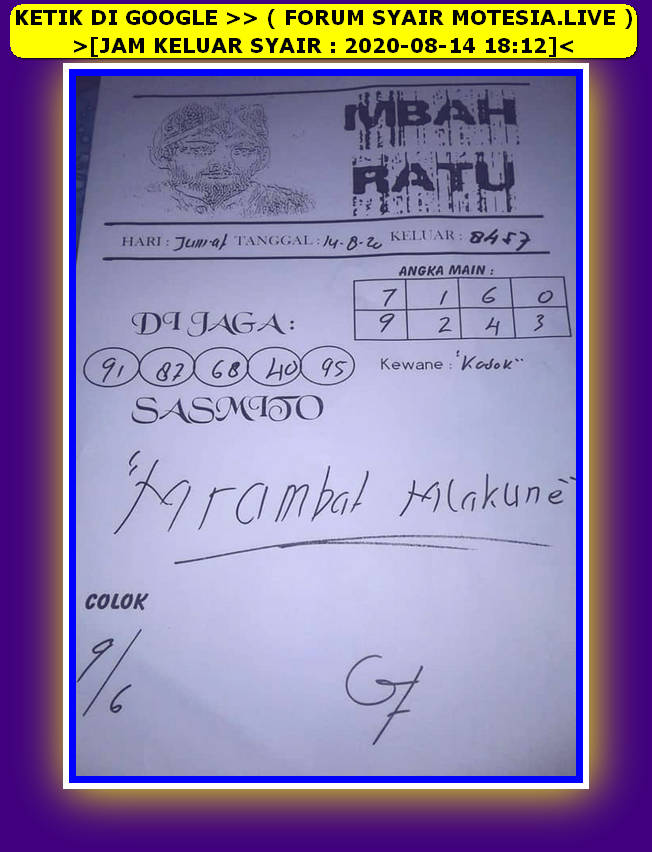 KETIK DI GOOGLE >> ( FORUM SYAIR MOTESIA.LIVE )
>[JAM KELUAR SYAIR : 2020-08-14 18:12]<
MBAH
RATU
HARI : Jum'at TANGGAL : 14-8-20 KELUAR : 8457
ANGKA MAIN :
7 1 6 0
9 2 4 3
DI JAGA :
91 87 68 40 95
Kewane : "Kodok"
SASMITO
"Mrambat Mlakune"
COLOK
9/6
G7